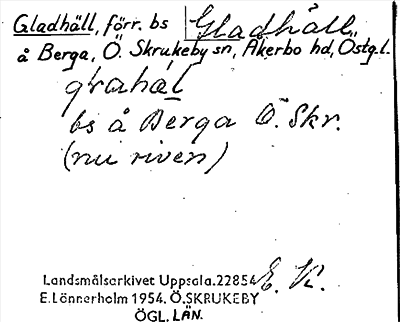 Gladhäll, förr. bs Gladhäll
å Berga, Ö. Skrukeby sn, Åkerbo hd, Östg.l.
grahal
bs å Berga Ö. Skr.
(nu riven)
E. K.
Landsmålsarkivet Uppsala. 22854
E. Lönnerholm 1954. Ö. SKRUKEBY
ÖGL. LÄN.